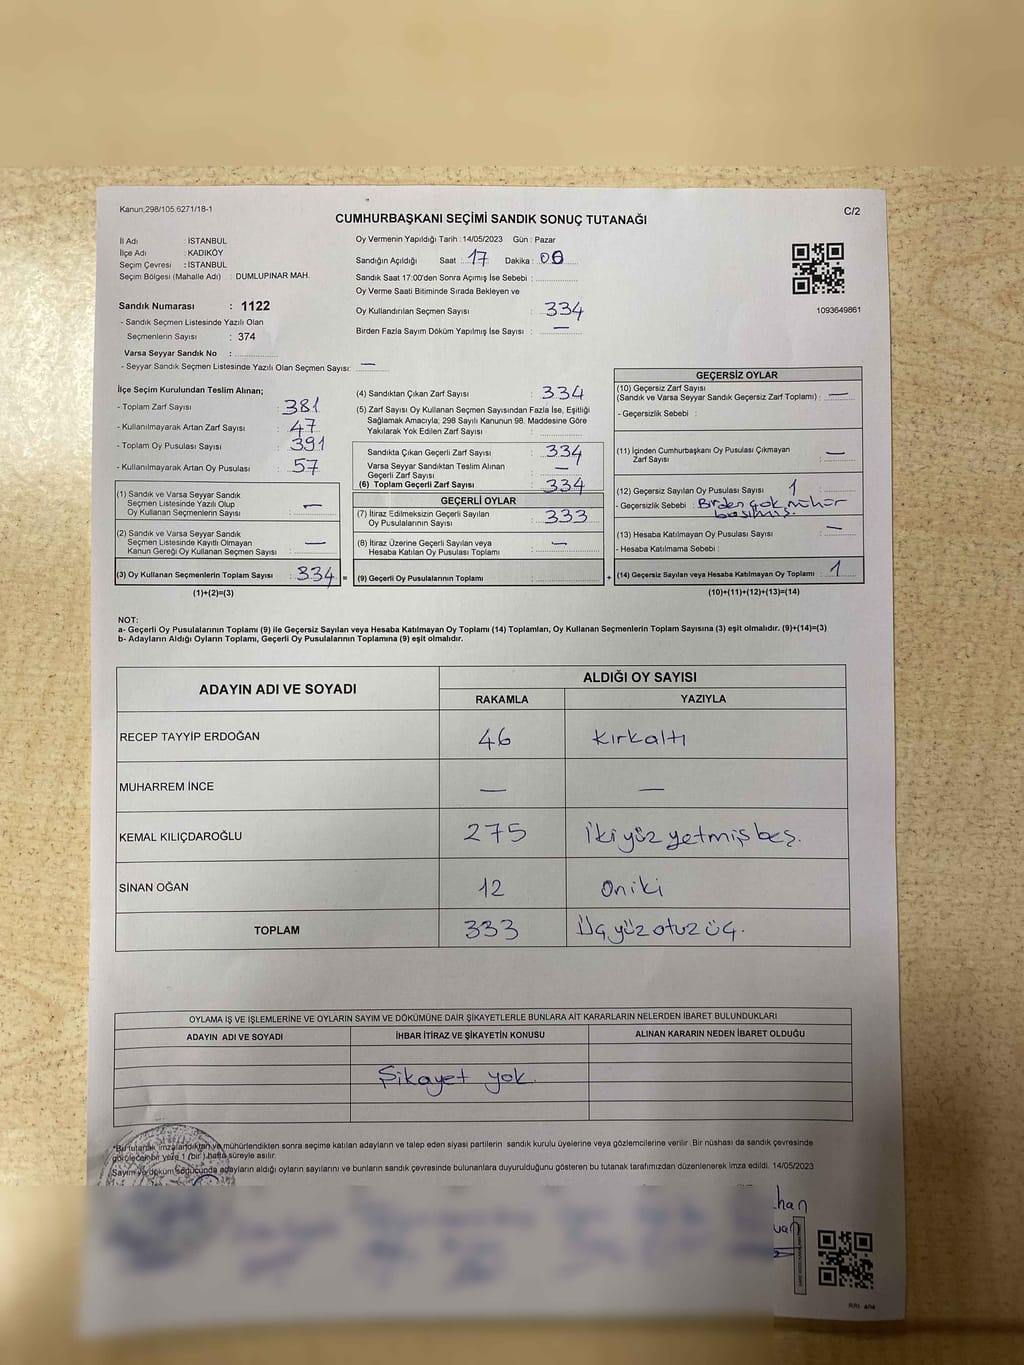 Kanun:298/105,6271/18-1
C/2
CUMHURBAŞKANI SEÇİMİ SANDIK SONUÇ TUTANAĞI
İl Adı : İSTANBUL
İlçe Adı : KADIKÖY
Seçim Çevresi : İSTANBUL
Seçim Bölgesi (Mahalle Adı) : DUMLUPINAR MAH.
Sandık Numarası : 1122
- Sandık Seçmen Listesinde Yazılı Olan
Seçmenlerin Sayısı : 374
Varsa Seyyar Sandık No :
- Seyyar Sandık Seçmen Listesinde Yazılı Olan Seçmen Sayısı: —
Oy Vermenin Yapıldığı Tarih :14/05/2023 Gün : Pazar
Sandığın Açıldığı Saat : 17 Dakika : 00
Sandık Saat 17:00'den Sonra Açımış İse Sebebi :
Oy Verme Saati Bitiminde Sırada Bekleyen ve
Oy Kullandırılan Seçmen Sayısı : 334
Birden Fazla Sayım Döküm Yapılmış İse Sayısı : —
1093649861
İlçe Seçim Kurulundan Teslim Alınan;
- Toplam Zarf Sayısı : 381
- Kullanılmayarak Artan Zarf Sayısı : 47
- Toplam Oy Pusulası Sayısı : 391
- Kullanılmayarak Artan Oy Pusulası : 57
(1) Sandık ve Varsa Seyyar Sandık
Seçmen Listesinde Yazılı Olup
Oy Kullanan Seçmenlerin Sayısı : —
(2) Sandık ve Varsa Seyyar Sandık
Seçmen Listesinde Kayıtlı Olmayan
Kanun Gereği Oy Kullanan Seçmen Sayısı : —
(3) Oy Kullanan Seçmenlerin Toplam Sayısı : 334 =
(1)+(2)=(3)
(4) Sandıktan Çıkan Zarf Sayısı : 334
(5) Zarf Sayısı Oy Kullanan Seçmen Sayısından Fazla İse, Eşitliği
Sağlamak Amacıyla; 298 Sayılı Kanunun 98. Maddesine Göre
Yakılarak Yok Edilen Zarf Sayısı :
Sandıkta Çıkan Geçerli Zarf Sayısı : 334
Varsa Seyyar Sandıktan Teslim Alınan
Geçerli Zarf Sayısı : —
(6) Toplam Geçerli Zarf Sayısı : 334
GEÇERLİ OYLAR
(7) İtiraz Edilmeksizin Geçerli Sayılan
Oy Pusulalarının Sayısı : 333
(8) İtiraz Üzerine Geçerli Sayılan veya
Hesaba Katılan Oy Pusulası Toplamı : —
(9) Geçerli Oy Pusulalarının Toplamı : +
GEÇERSİZ OYLAR
(10) Geçersiz Zarf Sayısı
(Sandık ve Varsa Seyyar Sandık Geçersiz Zarf Toplamı) : —
- Geçersizlik Sebebi :
(11) İçinden Cumhurbaşkanı Oy Pusulası Çıkmayan
Zarf Sayısı : —
(12) Geçersiz Sayılan Oy Pusulası Sayısı : 1
- Geçersizlik Sebebi : Birden çok mühür
basılmış.
(13) Hesaba Katılmayan Oy Pusulası Sayısı : —
- Hesaba Katılmama Sebebi :
(14) Geçersiz Sayılan veya Hesaba Katılmayan Oy Toplamı : 1
(10)+(11)+(12)+(13)=(14)
NOT:
a- Geçerli Oy Pusulalarının Toplamı (9) ile Geçersiz Sayılan veya Hesaba Katılmayan Oy Toplamı (14) Toplamları, Oy Kullanan Seçmenlerin Toplam Sayısına (3) eşit olmalıdır. (9)+(14)=(3)
b- Adayların Aldığı Oyların Toplamı, Geçerli Oy Pusulalarının Toplamına (9) eşit olmalıdır.
ADAYIN ADI VE SOYADI
ALDIĞI OY SAYISI
RAKAMLA YAZIYLA
RECEP TAYYİP ERDOĞAN 46 kırkaltı
MUHARREM İNCE — —
KEMAL KILIÇDAROĞLU 275 İkiyüz yetmiş beş.
SİNAN OĞAN 12 Oniki
TOPLAM 333 Üç yüz otuz üç.
OYLAMA İŞ VE İŞLEMLERİNE VE OYLARIN SAYIM VE DÖKÜMÜNE DAİR ŞİKAYETLERLE BUNLARA AİT KARARLARIN NELERDEN İBARET BULUNDUKLARI
ADAYIN ADI VE SOYADI İHBAR İTİRAZ VE ŞİKAYETİN KONUSU ALINAN KARARIN NEDEN İBARET OLDUĞU
Şikayet yok.
*Bu tutanak imzalandıktan ve mühürlendikten sonra seçime katılan adayların ve talep eden siyasi partilerin sandık kurulu üyelerine veya gözlemcilerine verilir .Bir nüshası da sandık çevresinde
görülecek bir yere 1 (bir ) hafta süreyle asılır.
Sayım ve döküm sonucunda adayların aldığı oyların sayılarını ve bunların sandık çevresinde bulunanlara duyurulduğunu gösteren bu tutanak tarafımızdan düzenlenerek imza edildi. 14/05/2023